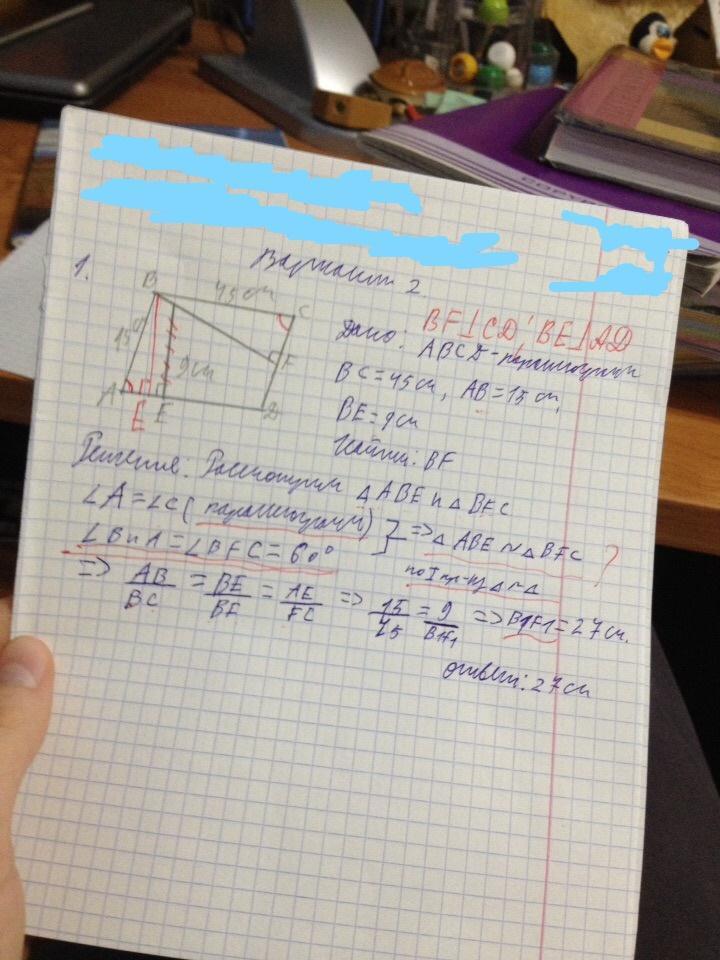 COPY
Вариант 2.
1.
B 45 см C
15 см
9 см
F
A E E D
Дано: BF⊥CD, BE⊥AD
ABCD - параллелограмм
BC = 45 см, AB = 15 см,
BE = 9 см
Найти: BF
Решение: Рассмотрим △ABE и △BFC
∠A = ∠C (параллелограмм)
=> △ABE ~ △BFC ?
= ∠BFC = 60°
по I пр-ку △ ~ △
=> AB/BC = BE/BF = AE/FC => 15/45 = 9/B1F1 => B1F1 = 27 см.
ответ: 27 см